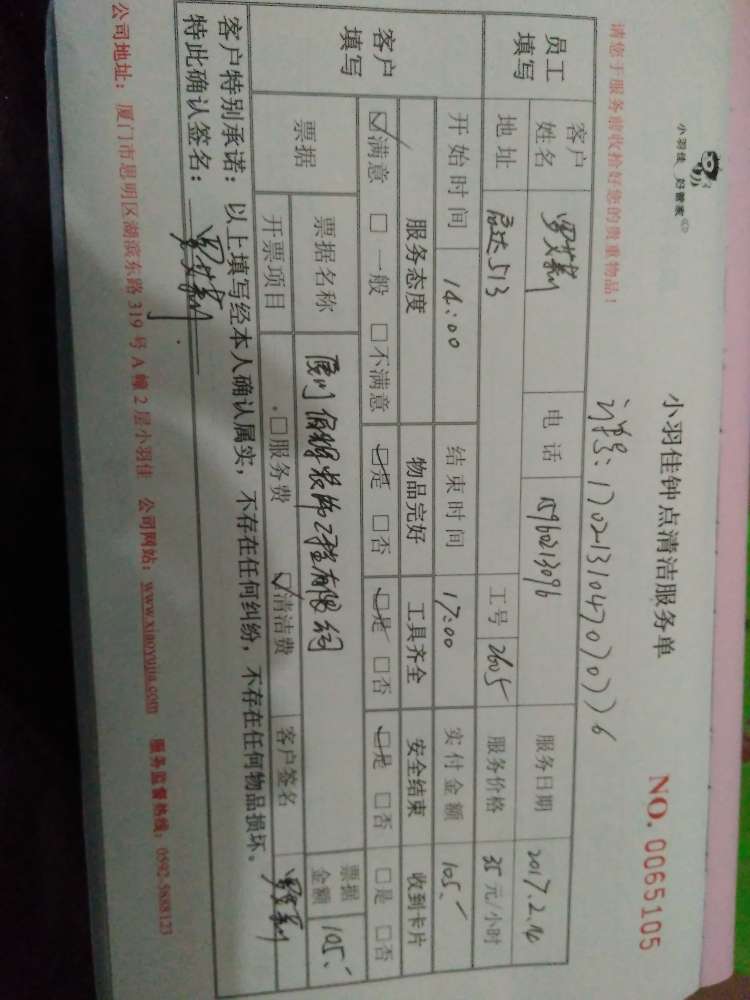 小羽佳 好管家
小羽佳钟点清洁服务单
NO. 0065105
请您于服务前收拾好您的贵重物品!
员工填写
客户姓名
电话 15960213096
服务日期 2017.2.14
地址
513
工号 2605
服务价格 35 元/小时
开始时间 14:00
结束时间 17:00
实付金额 105.-
客户填写
服务态度 物品完好 工具齐全 安全结束 收到卡片
☑满意 □一般 □不满意 ☑是 □否 ☑是 □否 ☑是 □否 □是 □否
票据
票据名称 厦门 装饰工程有限公司
票据金额 105.-
开票项目 □服务费 ☑清洁费 客户签名
客户特别承诺:以上填写经本人确认属实,不存在任何纠纷,不存在任何物品损坏。
特此确认签名:
公司地址:厦门市思明区湖滨东路 319 号 A 幢 2 层小羽佳 公司网站:www.xiaoyujia.com 服务监督热线:0592-5888123